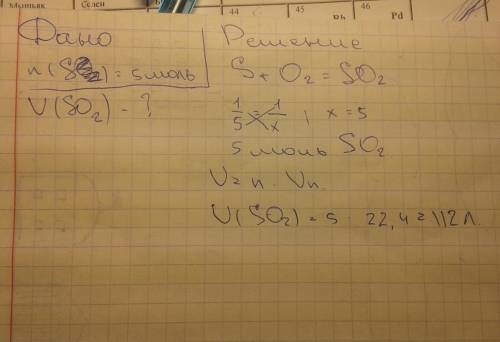 Мышьяк
Селен
44
45
46
Rh
Pd
Дано
n(S) = 5 моль
V(SO2) - ?
Решение
S + O2 = SO2
1/5 = 1/x ; x = 5
5 моль SO2
V = n · Vn.
V(SO2) = 5 · 22,4 = 112 л.